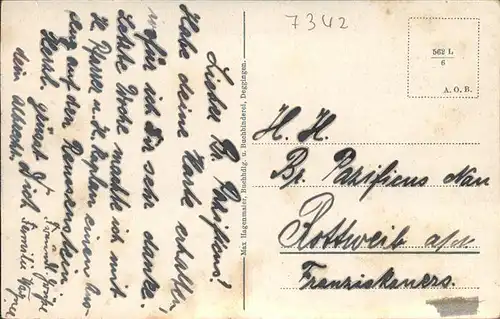 7342
562 L
6
A. O. B.
Max Hagenmaier, Buchhdlg. u. Buchbinderei, Deggingen.
Lieber Br. Pazifieus!
Habe deine Karte erhalten,
wofür ich Dir sehr danke.
Letzte Woche machte ich mit
H. Pfarrer u. H. Kaplan einen Aus-
flug auf den
Herzl. grüsst Dich
dein
Familie
H. H.
Br. Pazifieus Nau
Rottweil a/N.
Franziskaners.